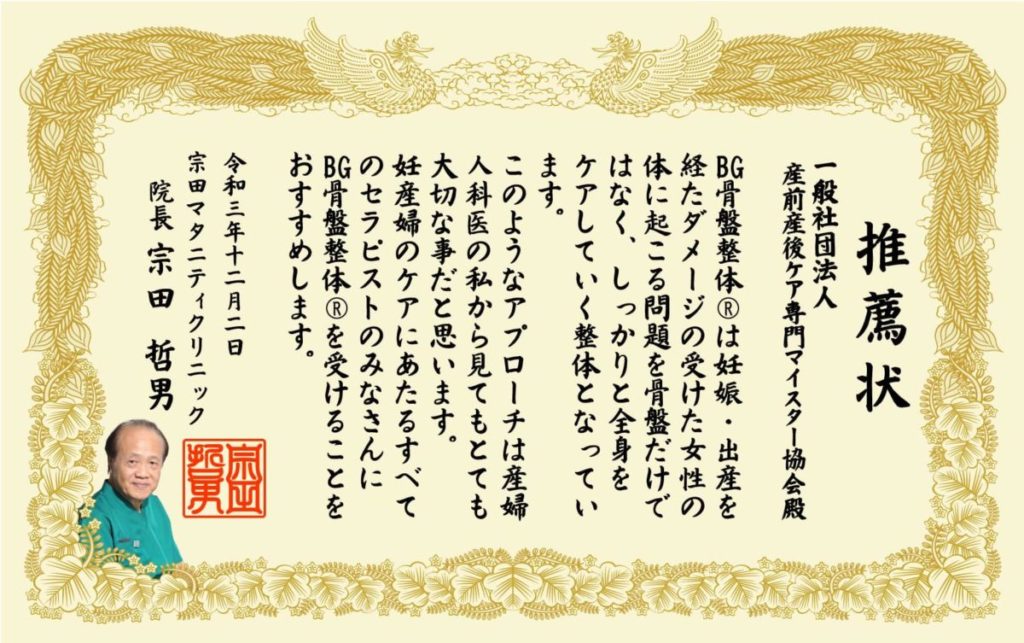 推薦状
一般社団法人
産前産後ケア専門マイスター協会殿
BG骨盤整体®は妊娠・出産を
経たダメージの受けた女性の
体に起こる問題を骨盤だけで
はなく、しっかりと全身を
ケアしていく整体となってい
ます。
このようなアプローチは産婦
人科医の私から見てもとても
大切な事だと思います。
妊産婦のケアにあたるすべて
のセラピストのみなさんに
BG骨盤整体®を受けることを
おすすめします。
令和三年十二月二日
宗田マタニティクリニック
院長 宗田 哲男
宗田
哲男